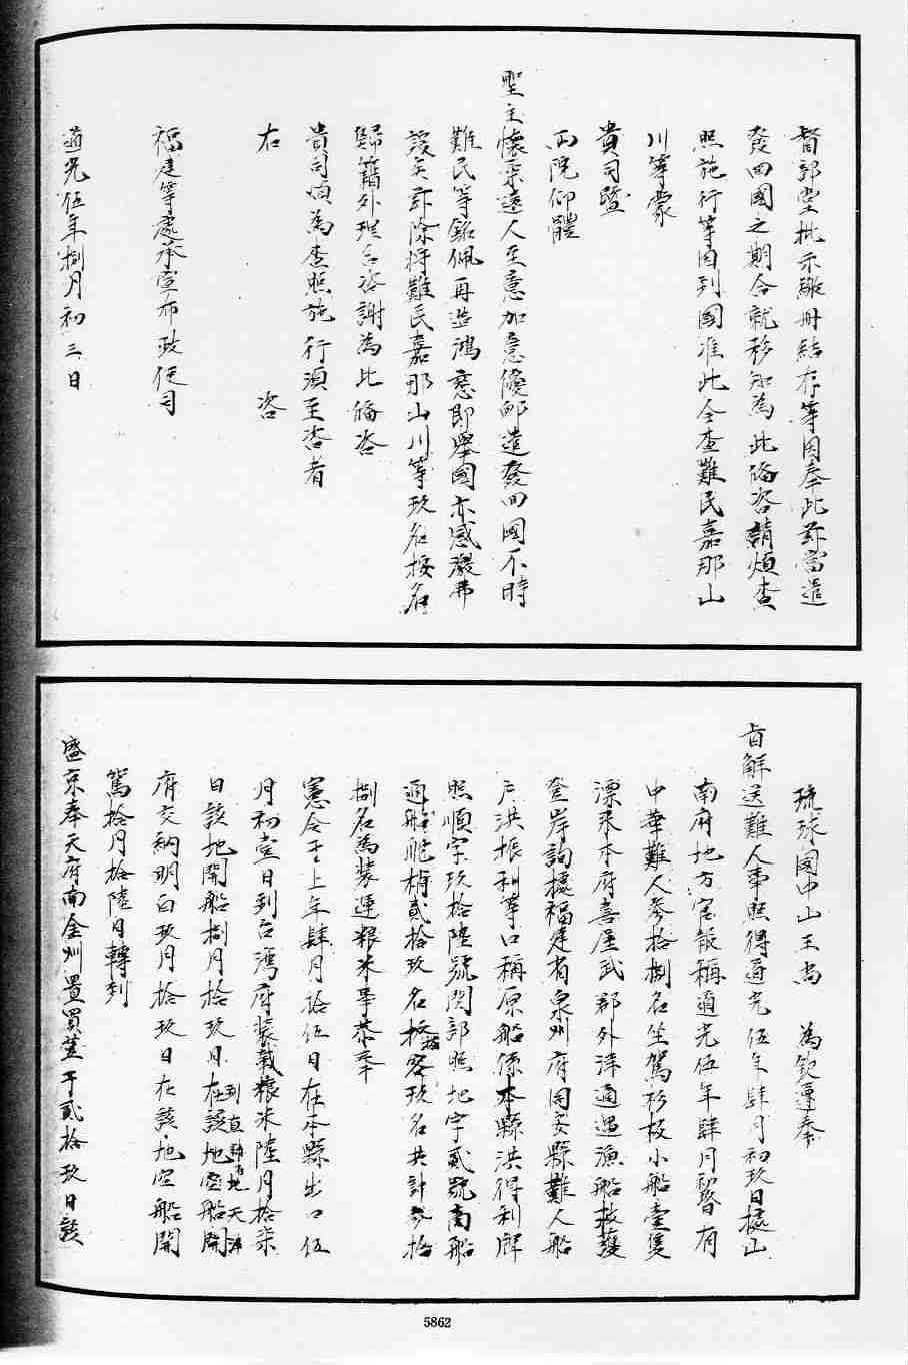 督部堂批示繳冊結存等因奉此茲當遣
發回國之期合就移知為此備咨請煩查
照施行等因到國准此今查難民嘉那山
川等蒙
貴司暨
兩院仰體
聖主懷柔遠人至意加意優郵遣發回國不時
難民等銘佩再造鴻慈即舉國亦感激弗
諼矣茲除將難民嘉那山川等玖名按名
歸籍外理合咨謝為此備咨
貴司煩為查照施行須至咨者
右 咨
福建等處承宣布政使司
道光伍年捌月初三日
琉球國中山王尚 為欽遵奉
旨解送難人事照得道光伍年肆月初玖日據山
南府地方官報稱道光伍年肆月初 日有
中華難人參拾捌名坐駕杉板小船壹隻
漂來本府喜屋武郡外洋適遇漁船救護
登岸詢據福建省泉州府同安縣難人船
戶洪振利等口稱原船係本縣洪得利牌
照順字玖拾陸號關部照地字貳號商船
通船舵梢貳拾玖名搭客玖名共計參拾
捌名為裝運粮米事恭奉
憲令于上年肆月拾伍日在本縣出口伍
月初壹日到台灣府裝載粮米陸月拾柒
日該地開船捌月拾玖日到直隸地天津在該地空船開
府交納明白玖月拾玖日在該地空船開
駕拾月拾陸日轉到
盛京奉天府南金州置買 于貳拾玖日該
5862